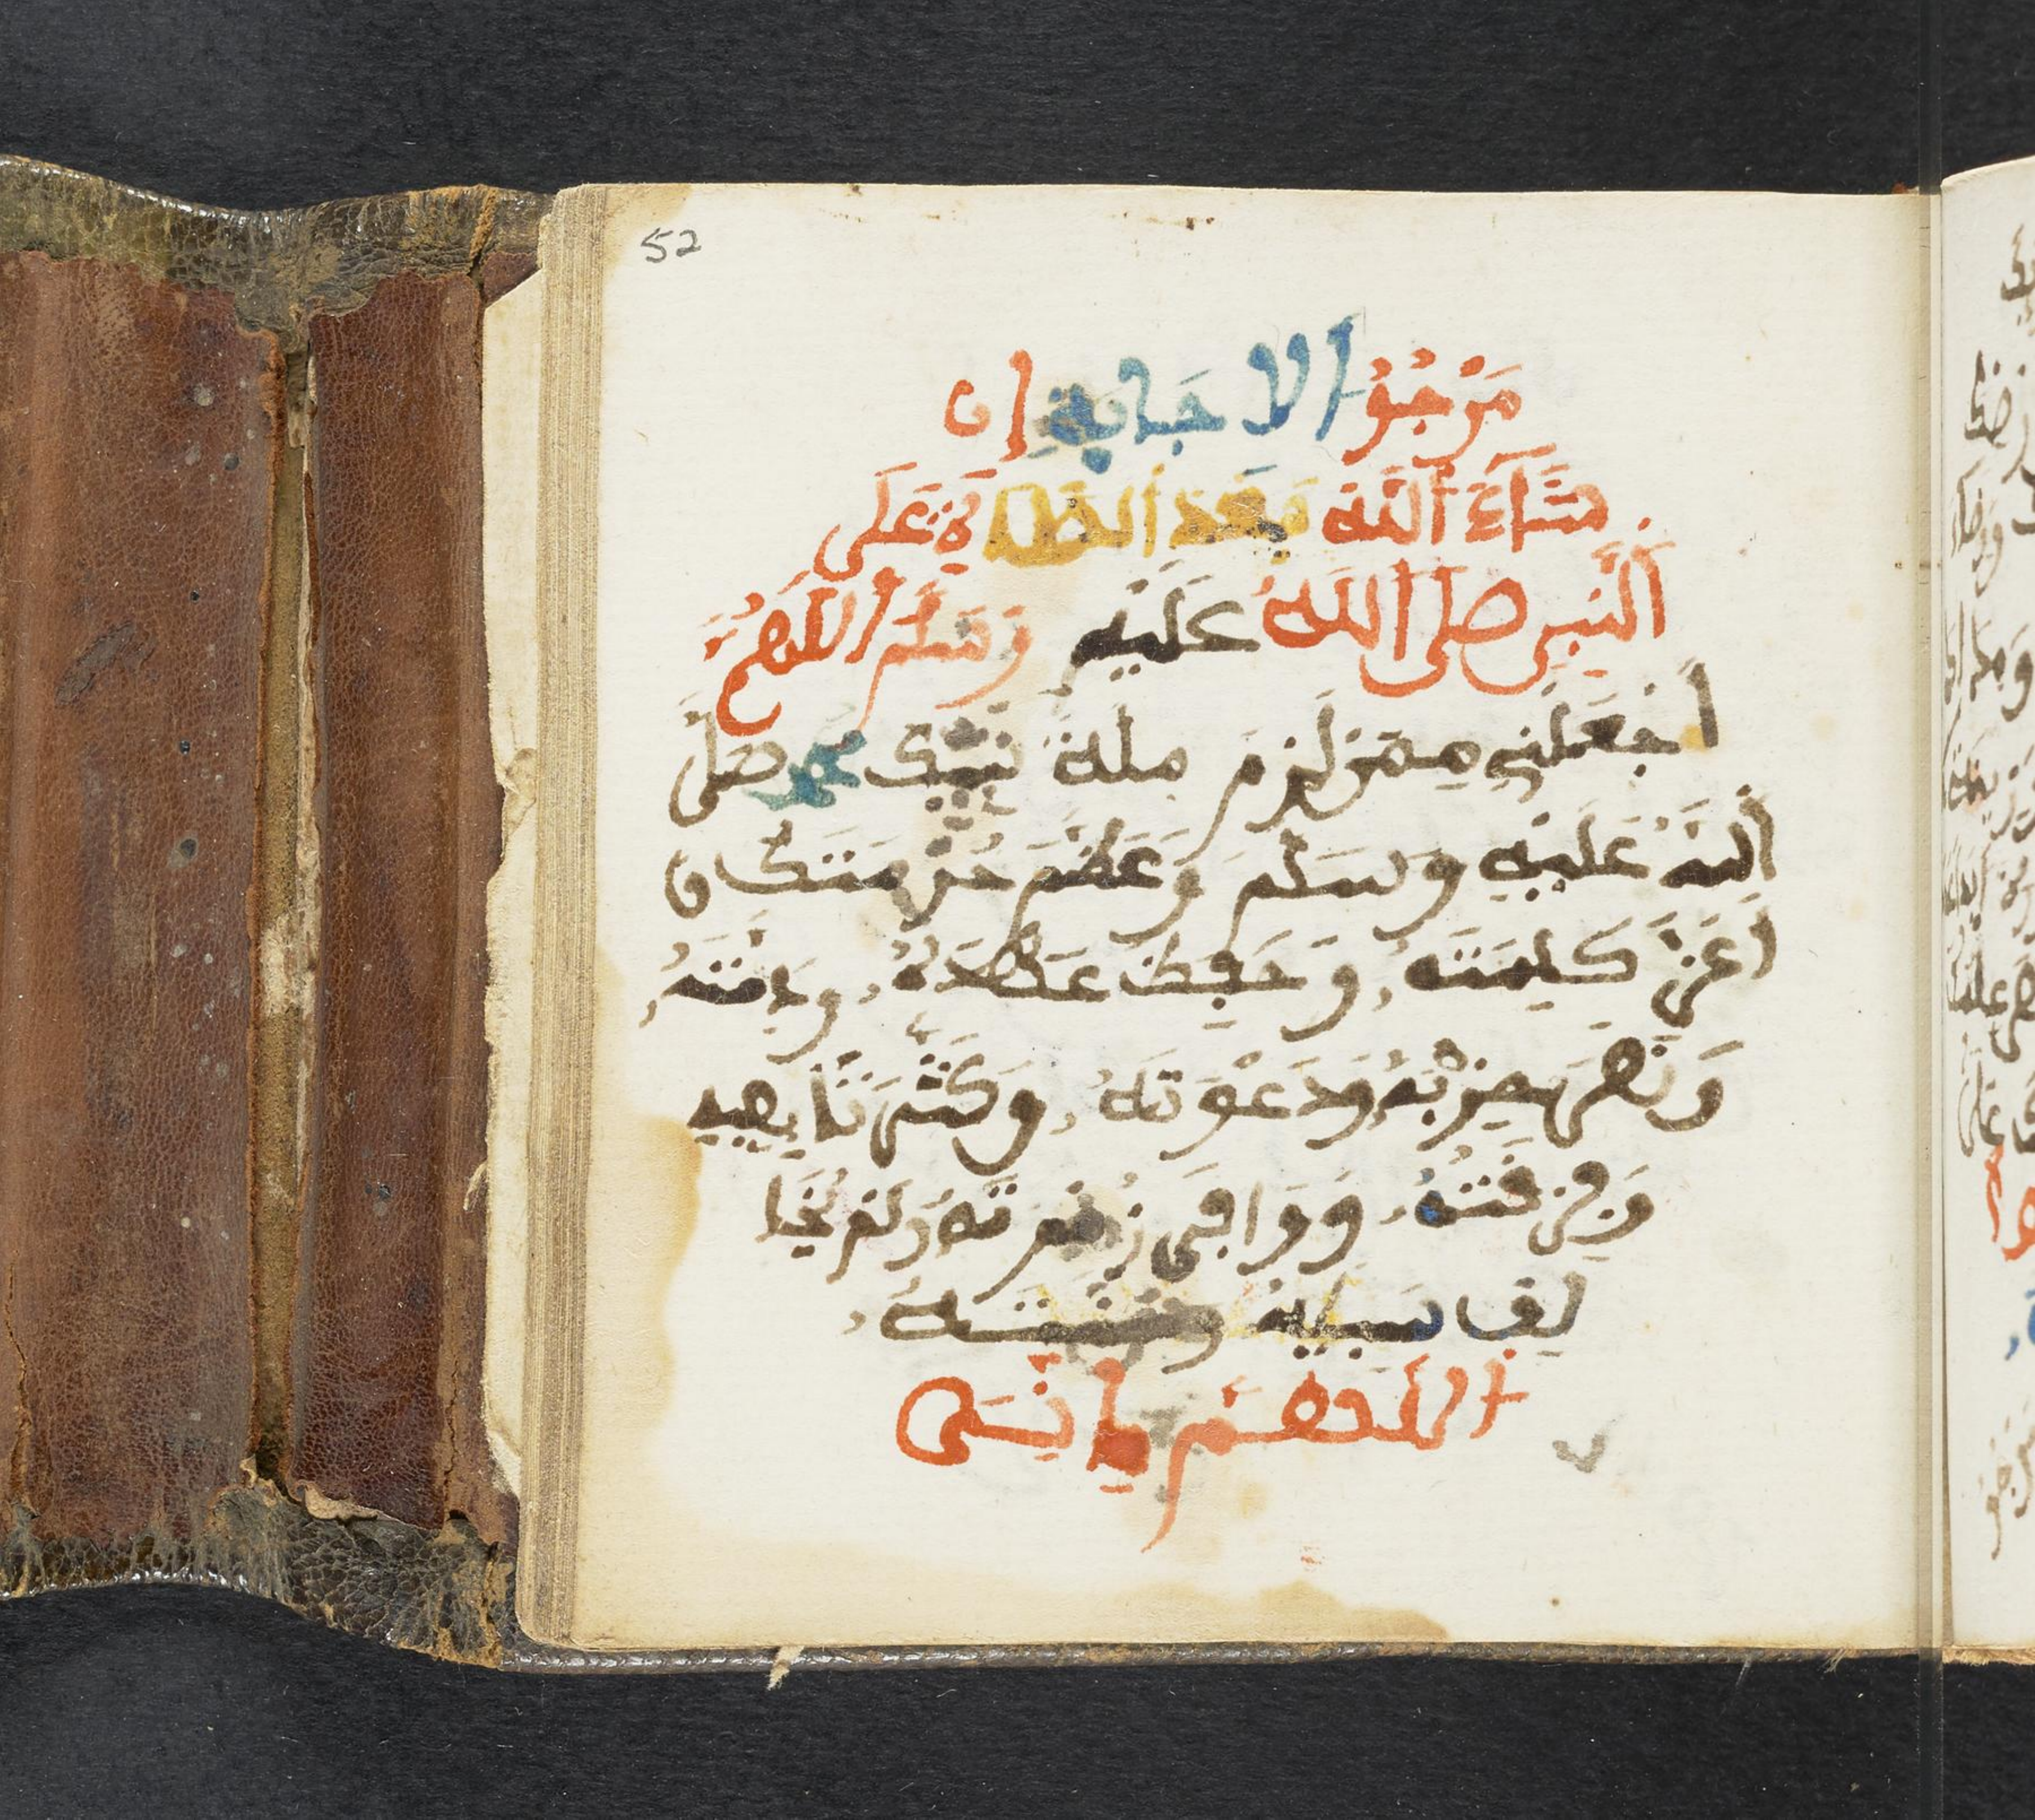 52
مَرْجُوُّ الاِجَابَةِ اِن
شَآءَ اَللَّه بَعْدَ الصَّلَاةِ عَلَى
اَلنَّبِيِّ صلى اللهُ عَلَيْهِ وَسَلَّمَ اللَّهُمَّ
اَجْعَلْنِي مِمَّن لَزِمَ مِلَّةَ نَبِيِّكَ مُحَمَّدٍ صَلَّى
اَللَّهُ عَلَيْهِ وَسَلَّمَ وَعَظَّمَ حُرْمَتَهُ وَ
اَعَزَّ كَلِمَتَهُ وَحَفِظَ عَهْدَهُ وَذِمَّتَهُ
وَنَصَرَ حِزْبَهُ وَدَعْوَتَهُ وَكَثَّرَ تَابِعِيهِ
وَفِرْقَتَهُ وَوَافَى زُمْرَتَهُ وَلَمْ يُخَا
لِفْ سَبِيلَهُ وَسُنَّتَهُ
اللَّهُمَّ يَا نِسَى